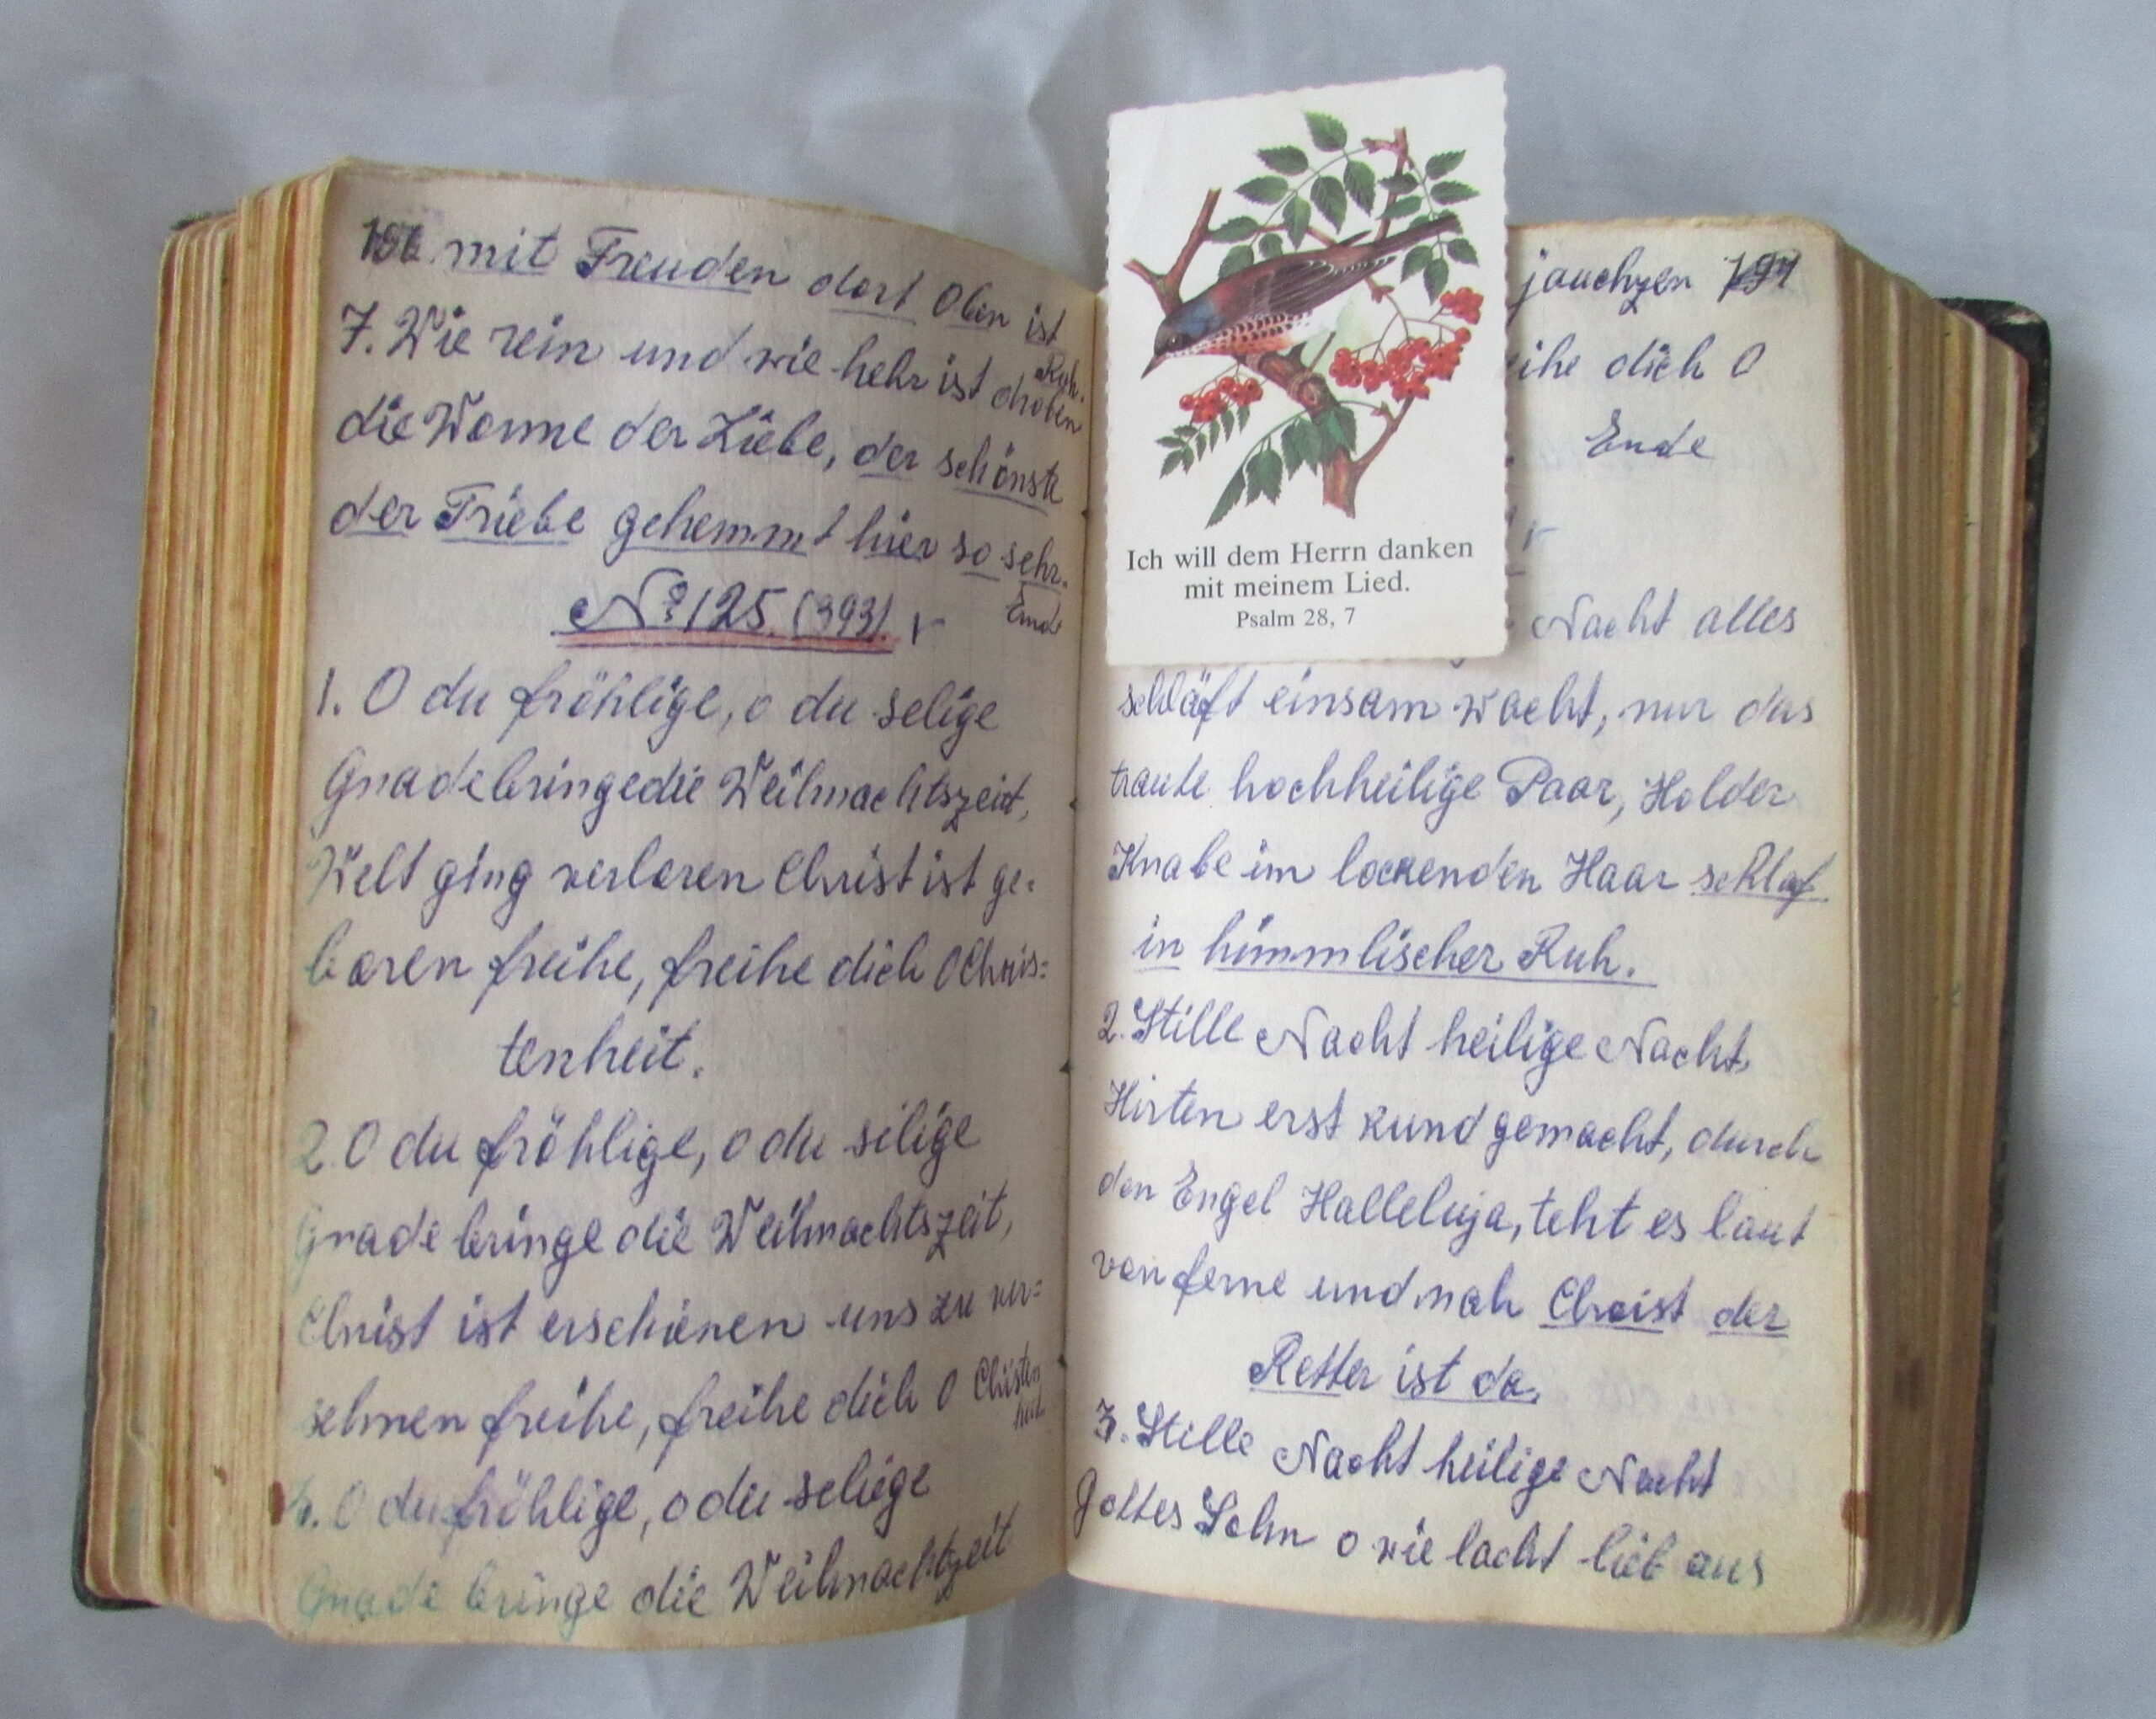 mit Freuden dort Oben ist
Ruh.
7. Wie rein und wie hehr ist droben
die Wonne der Liebe, der schönste
der Triebe gehemmt hier so sehr.
Ende
No 125. (393)
1. O du fröhlige, o du selige
Gnadebringedie Weihnachtszeit,
Welt ging verloren Christ ist ge=
boren freihe, freihe dich O Chris=
tenheit.
2. O du fröhlige, o du silige
Gnade bringe die Weihnachtszeit,
Christ ist erschienen uns zu ver=
sehnen freihe, freihe dich O Christen
heit.
O du fröhlige, o du seliege
Gnade bringe die Weihnachtzeit
Ich will dem Herrn danken
mit meinem Lied.
Psalm 28, 7
jauchzen
eihe dich O
Ende
Nacht alles
schläft einsam wacht, nur das
traute hochheilige Paar, Holder
Knabe im lockenden Haar schlaf
in himmlischer Ruh.
2. Stille Nacht heilige Nacht
Hirten erst kund gemacht, durch
den Engel Halleluja, teht es laut
von ferne und nah Christ der
Retter ist da.
3. Stille Nacht heilige Nacht
Gottes Sohn o wie lacht lieb aus